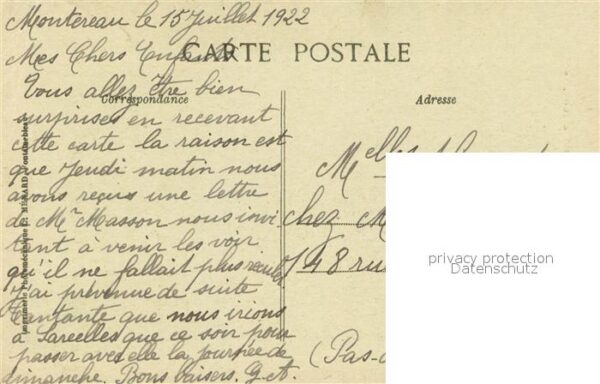 Montereau le 15 Juillet 1922
Mes Chers Enfants
CARTE POSTALE
Correspondance
Adresse
Vous allez être bien
surprises en recevant
cette carte la raison est
que Jeudi matin nous
avons reçus une lettre
de Mr Masson nous invi
tant à venir les voir
qu'il ne fallait plus
J'ai prévenue de suite
Tantante que nous irions
à Sarcelles que ce soir pour
passer avec elle la journée de
dimanche. Bons baisers. G. A.
Imprimerie Photomécanique
Melles
chez M
148 rue
(Pas-
privacy protection
Datenschutz